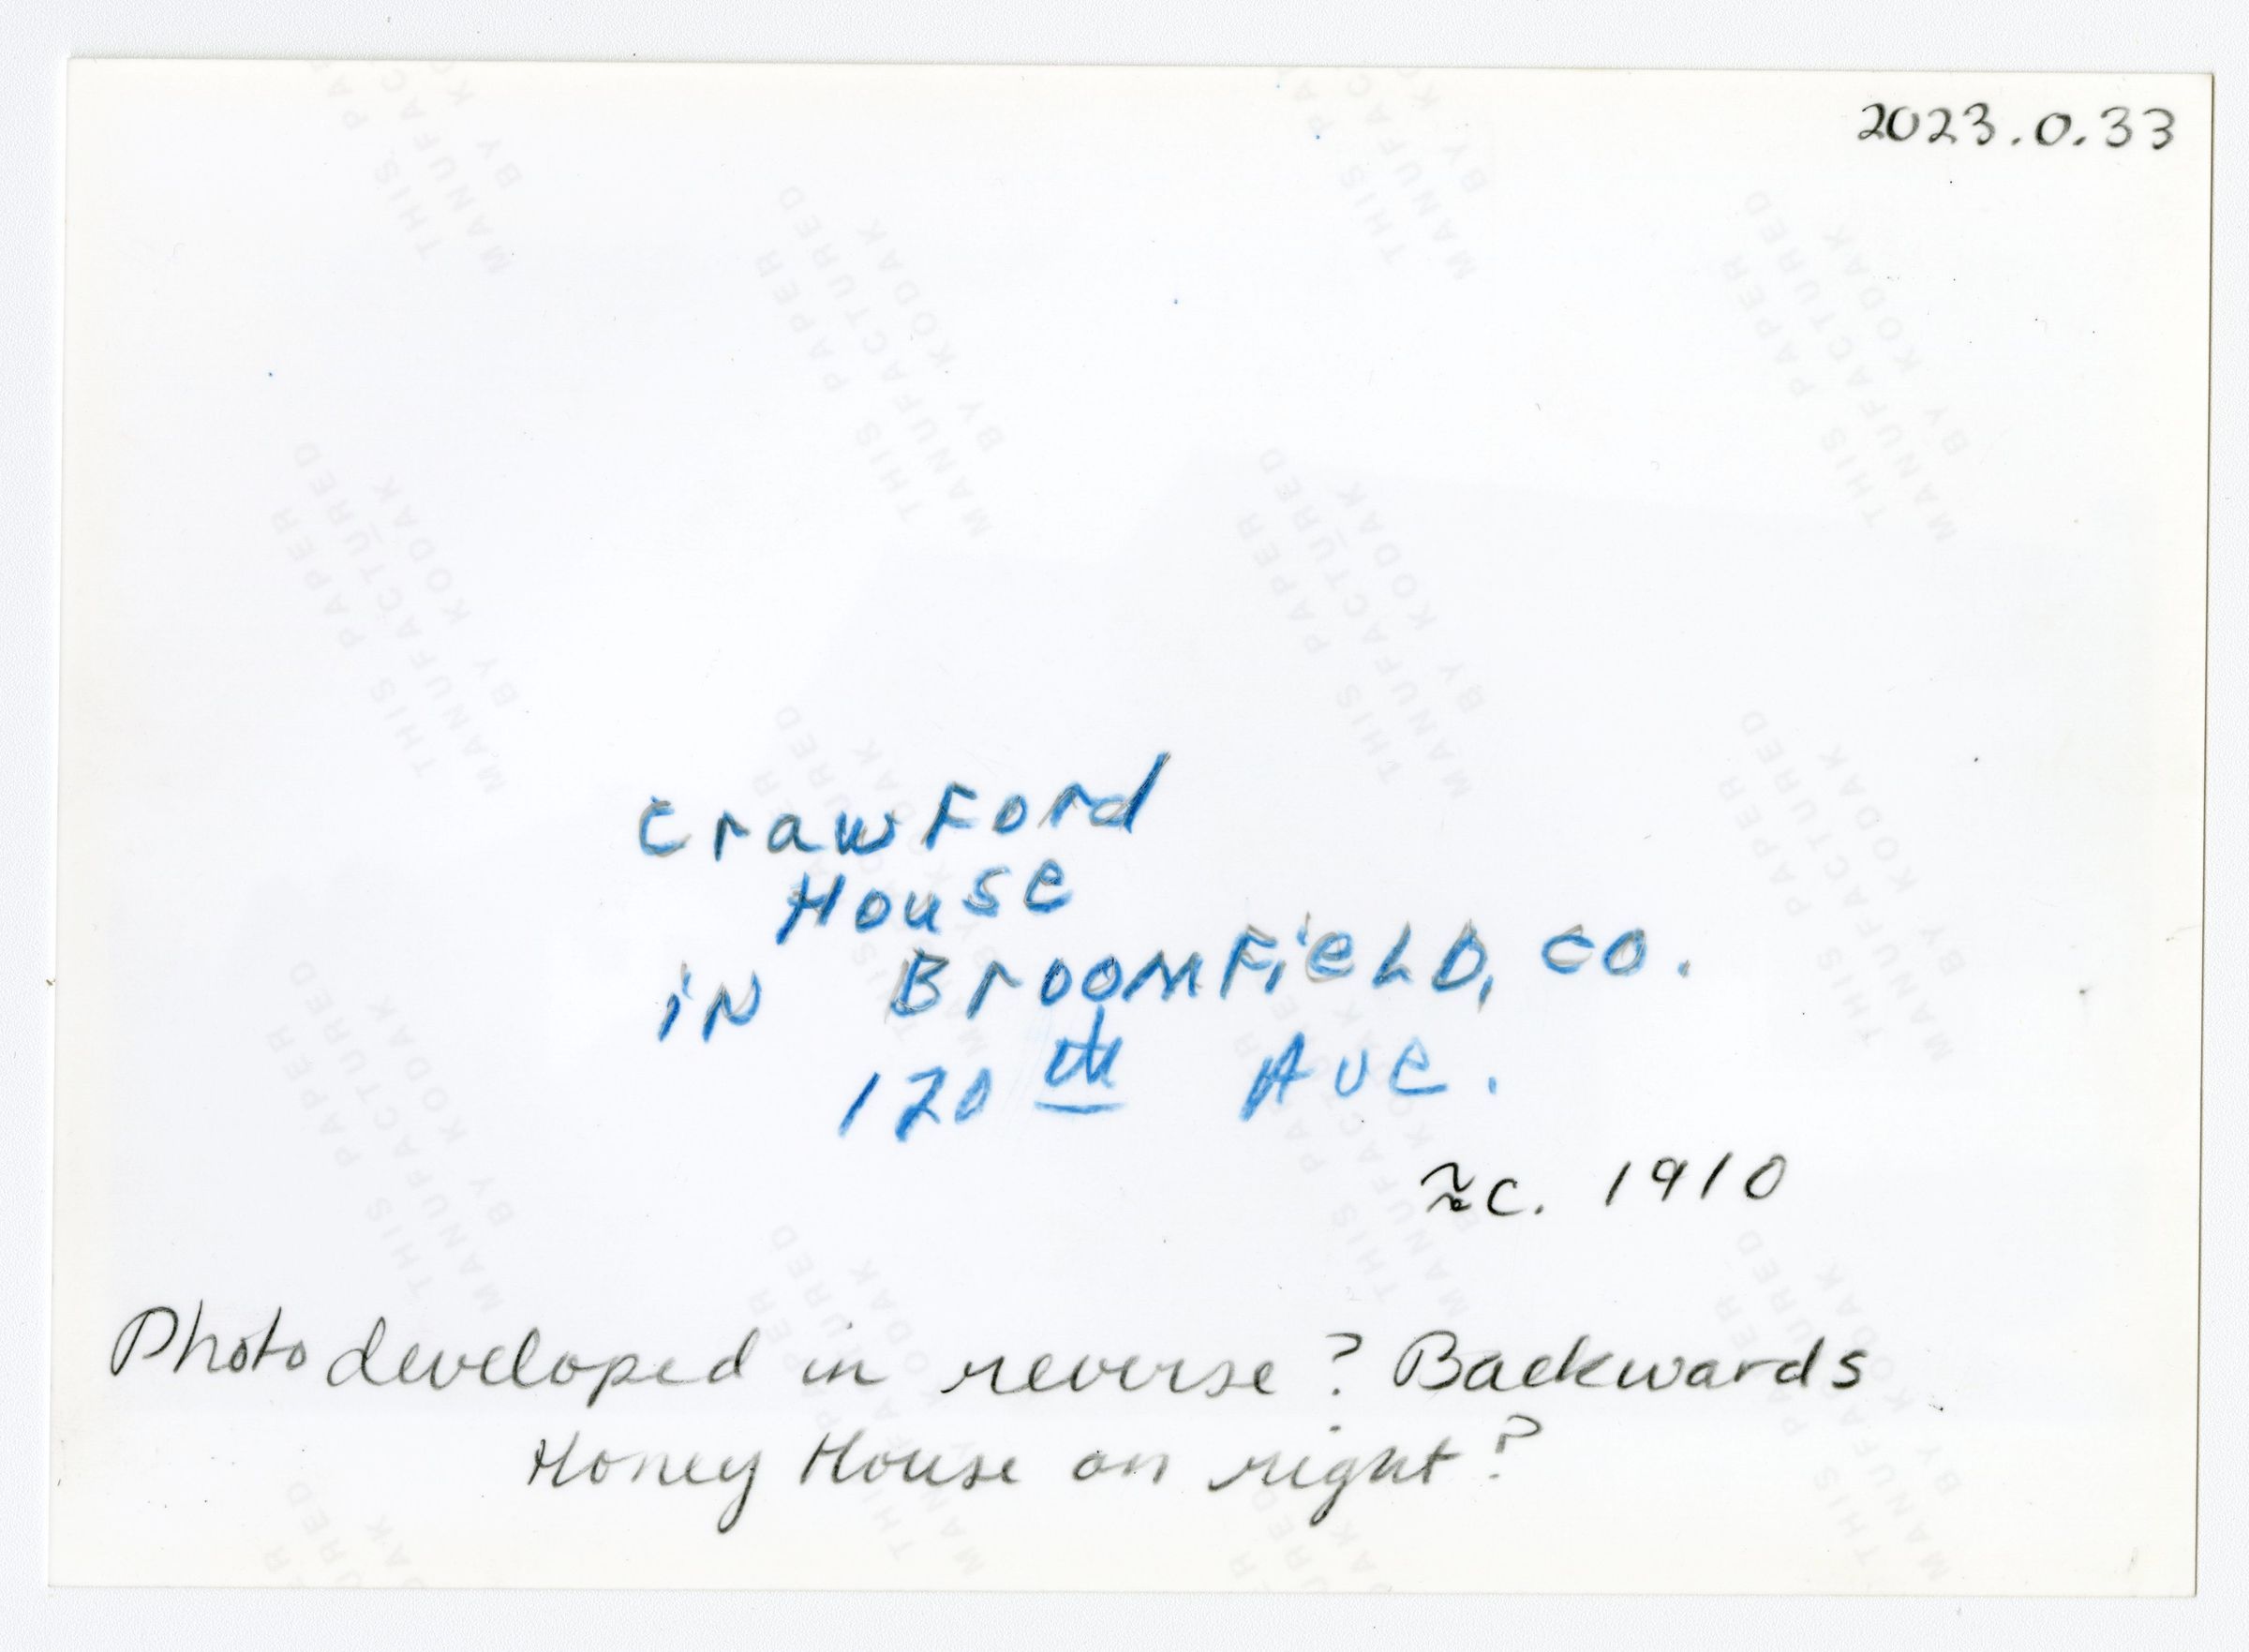 2023.0.33
Crawford
House
iN BrOOMFiELD, CO.
120th Ave.
≈c. 1910
Photo developed in reverse? Backwards
Honey House on right?
THIS PAPER
MANUFACTURED
BY KODAK